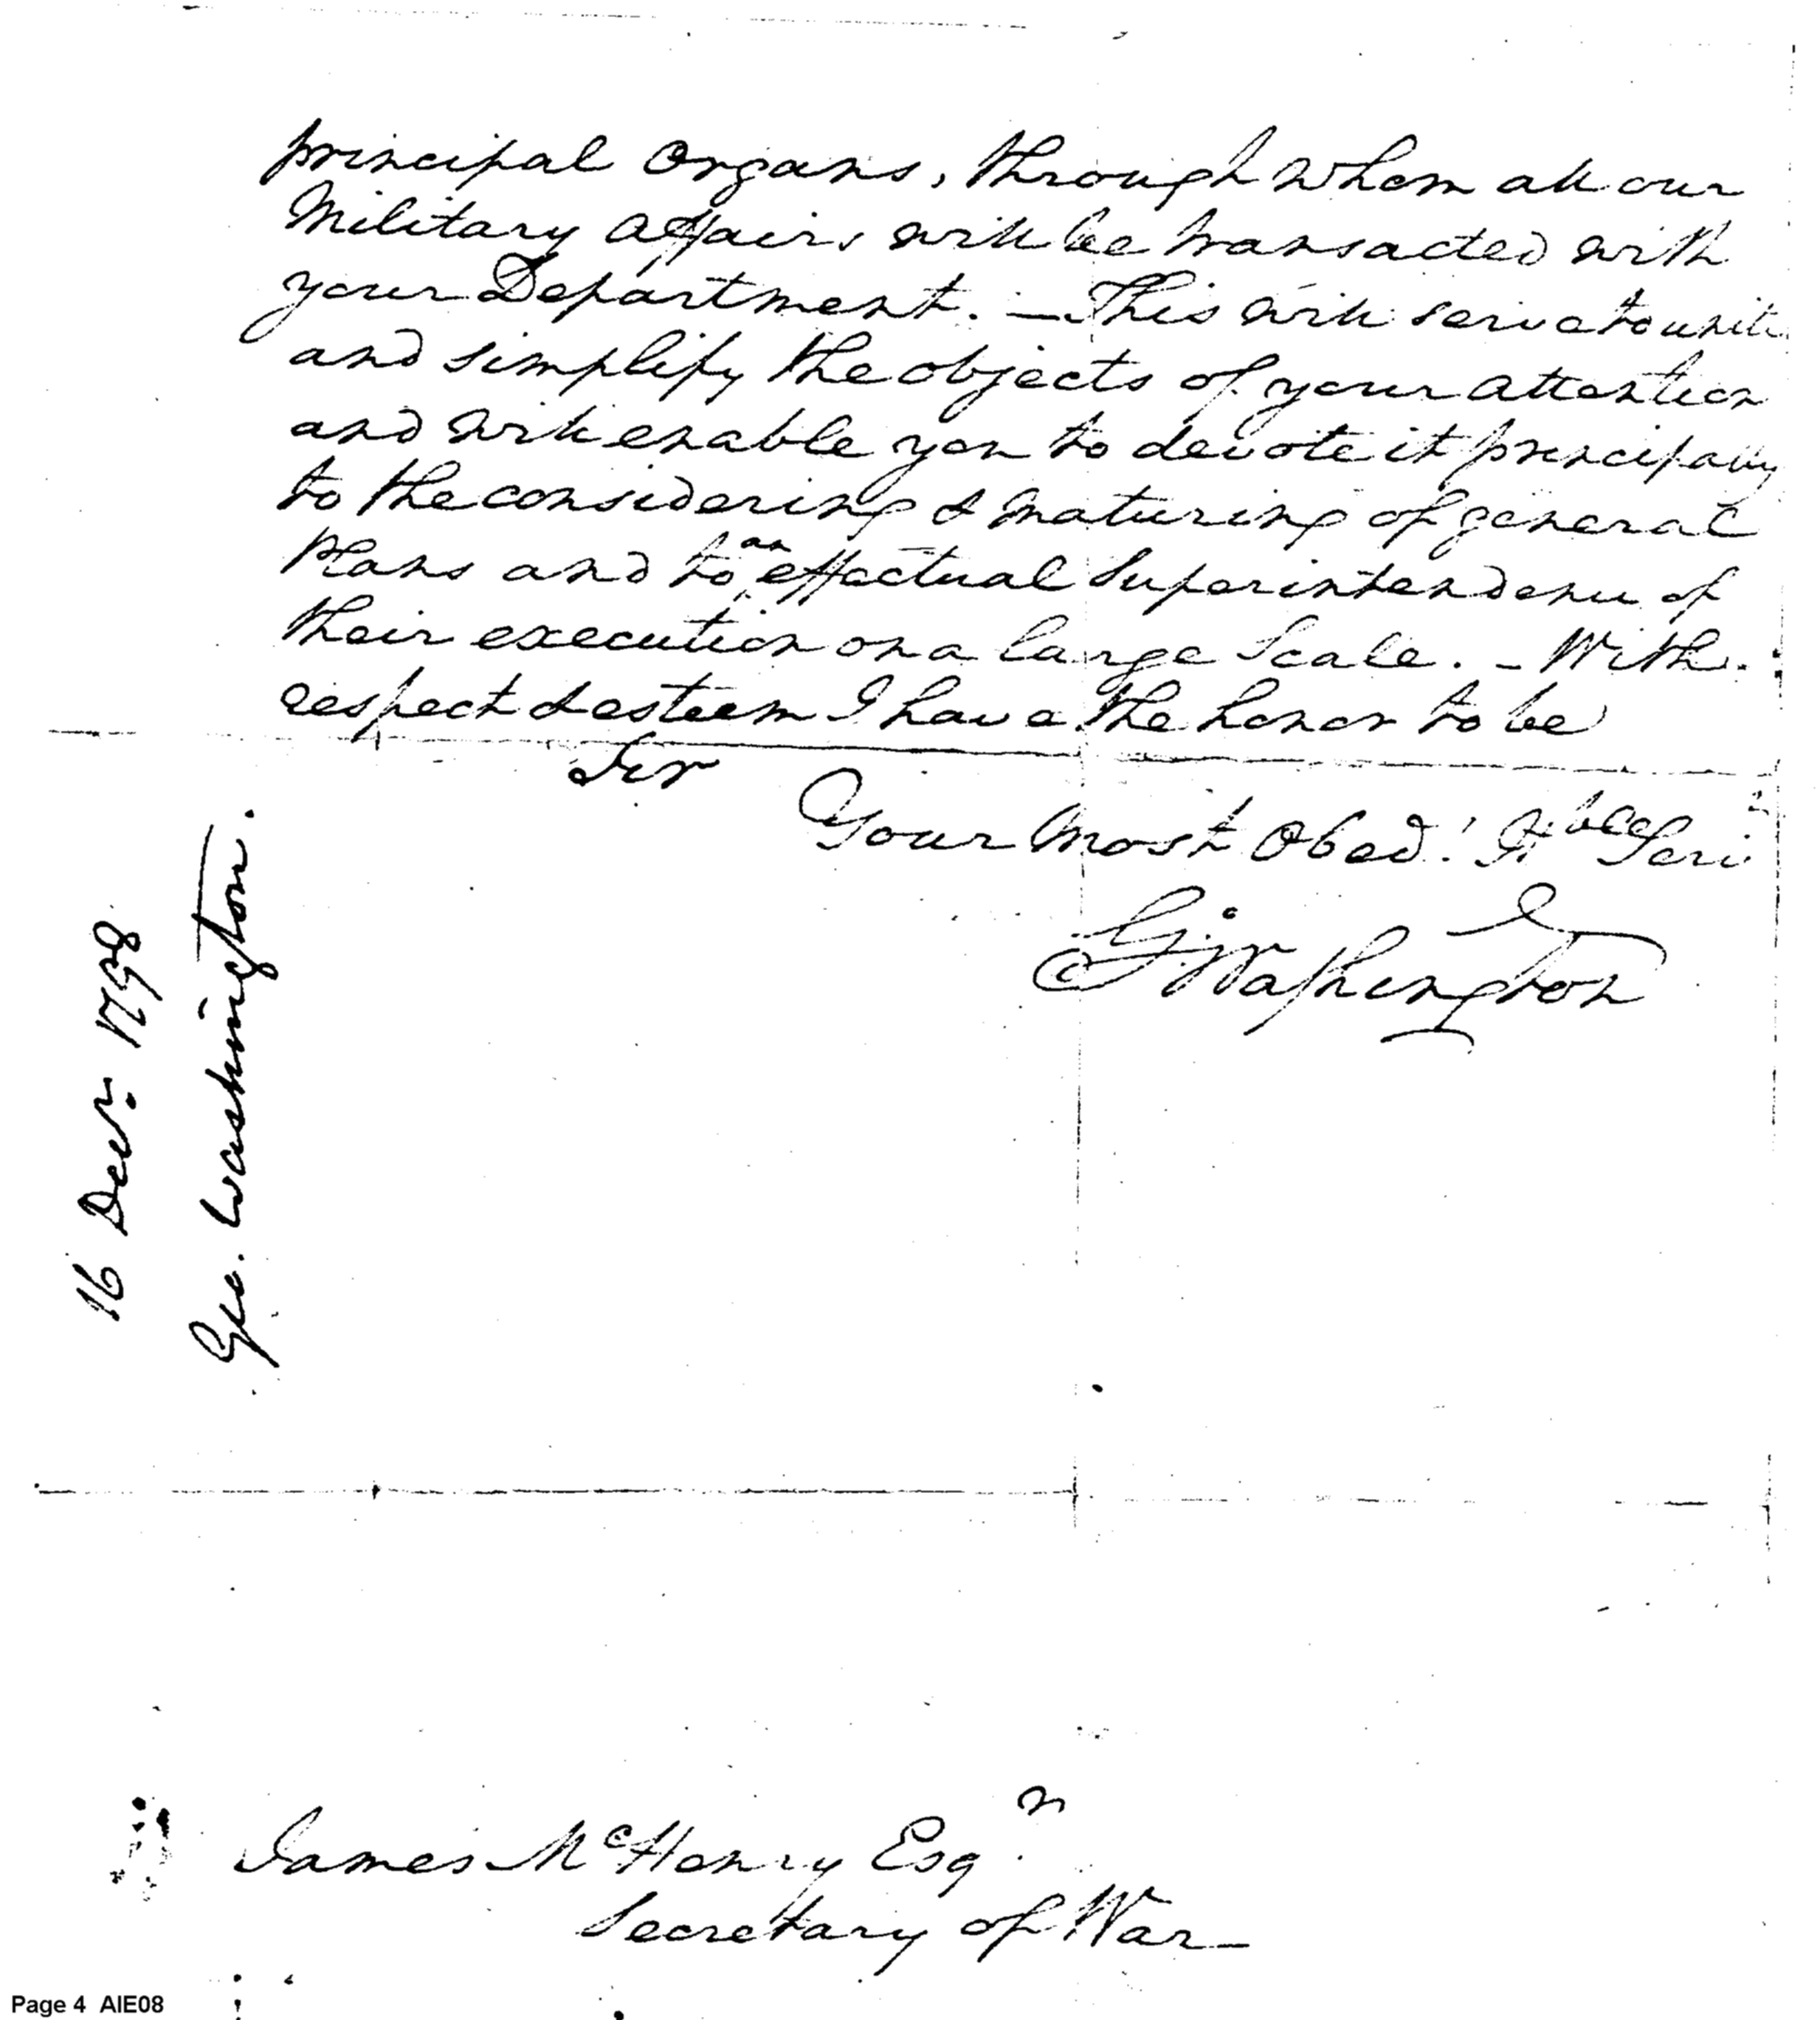 principal Organs, through whom all our
Military affairs will be transacted with
your Department. – This will serve to unite
and simplify the objects of your attention
and will enable you to devote it principally
to the considering & maturing of general
Plans and to an effectual Superintendence of
their execution on a large Scale. – With
respect & esteem I have the honor to be
Sir
Your most Obed.t Hble Serv.
G:Washington
16 Decr. 1798
Geo. Washington.
James McHenry Esqr.
Secretary of War –
Page 4 AIE08